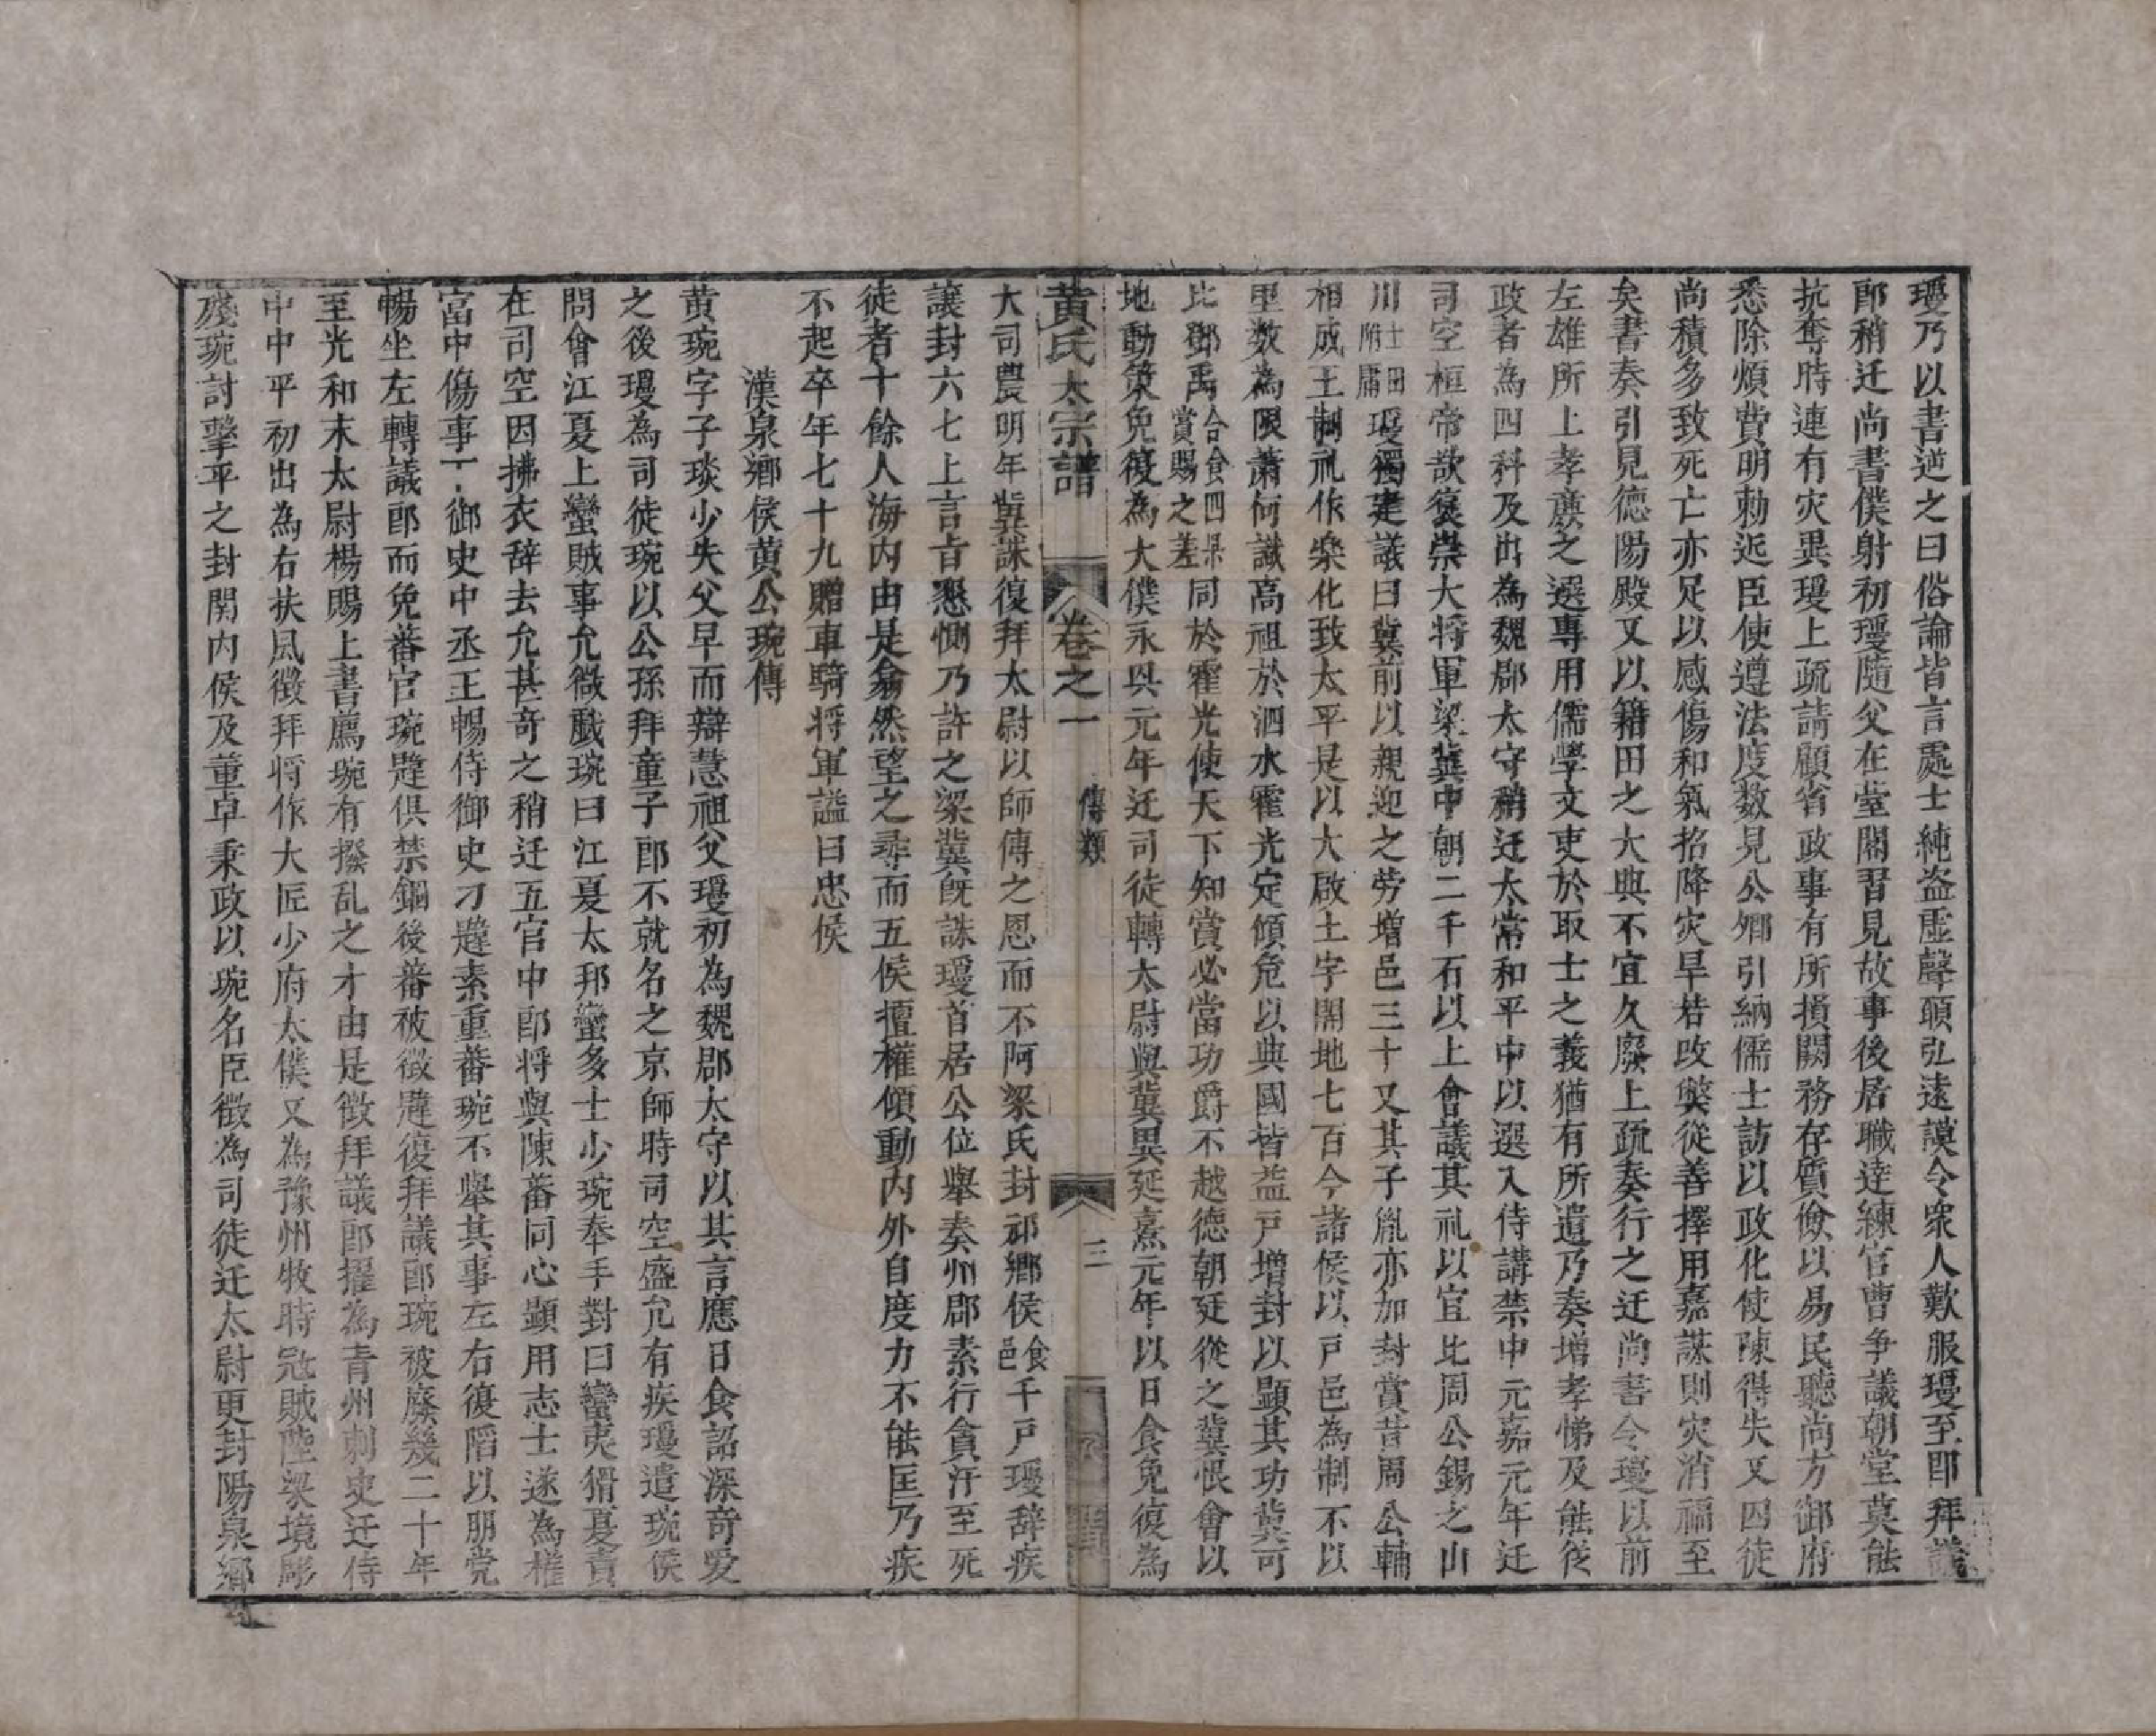 瓊乃以書逆之曰俗論皆言處士純盗虛聲願弘遠謨令衆人歎服瓊至即拜議
郎稍迁尚書僕射初瓊随父在臺閣習見故事後居職逹練官曹争議朝堂莫能
抗奪時連有灾異瓊上疏請顧省政事有所損闕務存質儉以易民聽尚方御府
悉除煩費明勅近臣使遵法度数見公卿引納儒士訪以政化使陳得失又囚徒
尚積多致死亡亦足以感傷和氣招降灾旱若改獘從善擇用嘉謀則灾消福至
矣書奏引見德陽殿又以籍田之大典不宜久廢上疏奏行之迁尚書令瓊以前
左雄所上孝廉之選專用儒學文吏於取士之義猶有所遺乃奏增孝悌及能從
政者為四科及出為魏郡太守稍迁太常和平中以選入侍講禁中元嘉元年迁
司空桓帝欲褒崇大将軍梁冀中朝二千石以上會議其礼以宜比周公錫之山
川士田附庸瓊獨建議曰冀前以親迎之劳增邑三十又其子胤亦加封賞昔周公輔
相成王制礼作樂化致太平是以大啟土宇開地七百今諸侯以戸邑為制不以
里数為限蕭何識高祖於泗水霍光定傾危以典國皆益戸增封以顯其功冀可
比鄧禹合食四县賞賜之差同於霍光使天下知賞必當功爵不越德朝廷從之冀恨會以
地動策免復為大僕永興元年迁司徒轉太尉與冀異延熹元年以日食免復為
黄氏太宗譜 卷之一 傳類 三
大司農明年冀誅復拜太尉以師傅之恩而不阿梁氏封祁鄉侯食邑千戸瓊辞疾
讓封六七上言旨懇惻乃許之梁冀旣誅瓊首居公位舉奏州郡素行貪汙至死
徒者十餘人海内由是翕然望之尋而五侯擅權傾動内外自度力不能匡乃疾
不起卒年七十九贈車騎将軍謚曰忠侯
漢泉鄉侯黄公琬傳
黄琬字子琰少失父早而辯慧祖父瓊初為魏郡太守以其言應日食詔深奇爱
之後瓊為司徒琬以公孫拜童子郎不就名之京師時司空盛允有疾瓊遣琬侯
問會江夏上蠻賊事允微戲琬曰江夏太邦蠻多士少琬奉手對曰蠻夷猾夏責
在司空因拂衣辞去允甚奇之稍迁五官中郎将與陳蕃同心顯用志士遂為權
富中傷事下御史中丞王暢侍御史刁韙素重蕃琬不舉其事左右復䧟以朋党
暢坐左轉議郎而免蕃官琬韙俱禁錮後蕃被徵韙復拜議郎琬被廢幾二十年
至光和末太尉楊賜上書薦琬有撥乱之才由是徵拜議郎擢為青州刺史迁侍
中中平初出為右扶風徵拜将作大匠少府太僕又為豫州牧時冦賊陸梁境彫
殘琬討擊平之封関内侯及董卓秉政以琬名臣徵為司徒迁太尉更封陽泉鄉